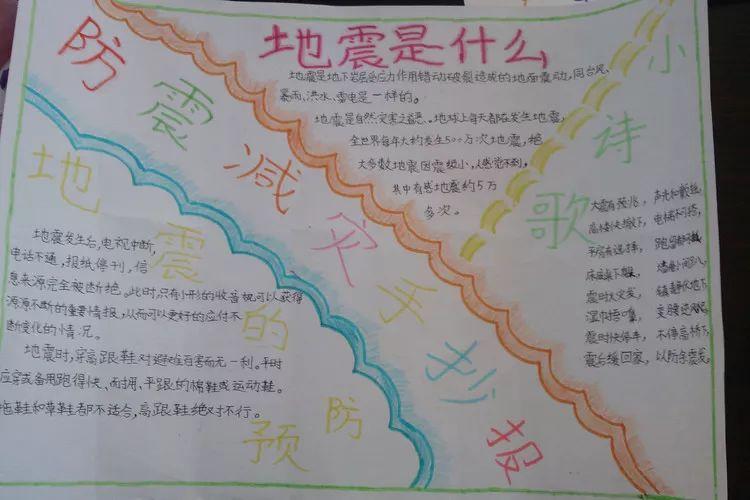 防震减灾手抄报
地震是什么
地震是地下岩层受应力作用错动破裂造成的地面震动,同台风、
暴雨、洪水、雷电是一样的。
地震是自然灾害之一。地球上每天都在发生地震,
全世界每年大约发生500万次地震,绝
大多数地震因震级小,人感觉不到,
其中有感地震约5万
多次。
小诗歌
大震有预兆,声光和
高楼快撤下,电梯不可搭,
平房
床底桌下
震时火灾发,
湿巾捂口鼻,
震时快停车,不停高桥下,
震后缓回家,以防余震发。
地震的预防
地震发生后,电视中断,
电话不通,报纸停刊,信
息来源完全被断绝。此时,只有小形的收音机可以获得
源源不断的重要情报,从而可以更好的应付不
断变化的情况。
地震时,穿高跟鞋对避难百害而无一利。平时
应穿或备用跑得快、耐拥、平跟的棉鞋或运动鞋。
拖鞋和草鞋都不适合,高跟鞋绝对不行。